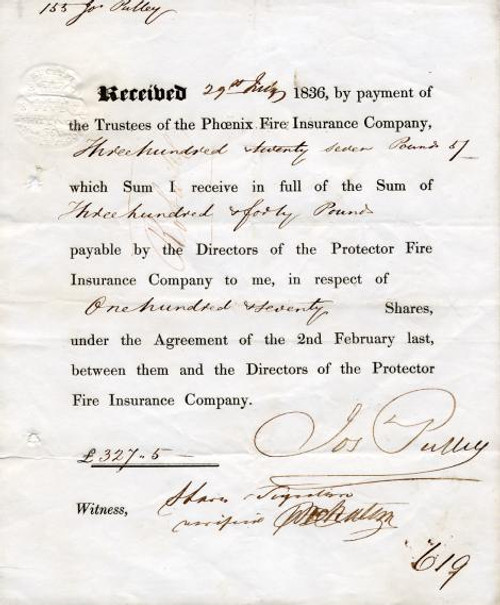 155 Jos Pulley
Received 29th July 1836, by payment of
the Trustees of the Phœnix Fire Insurance Company,
Three hundred & twenty seven Pounds 5/
which Sum I receive in full of the Sum of
Three hundred & forty Pounds
payable by the Directors of the Protector Fire
Insurance Company to me, in respect of
One hundred & seventy Shares,
under the Agreement of the 2nd February last,
between them and the Directors of the Protector
Fire Insurance Company.
Jos Pulley
£327..5 —
Share Signature
Witness, verified
619